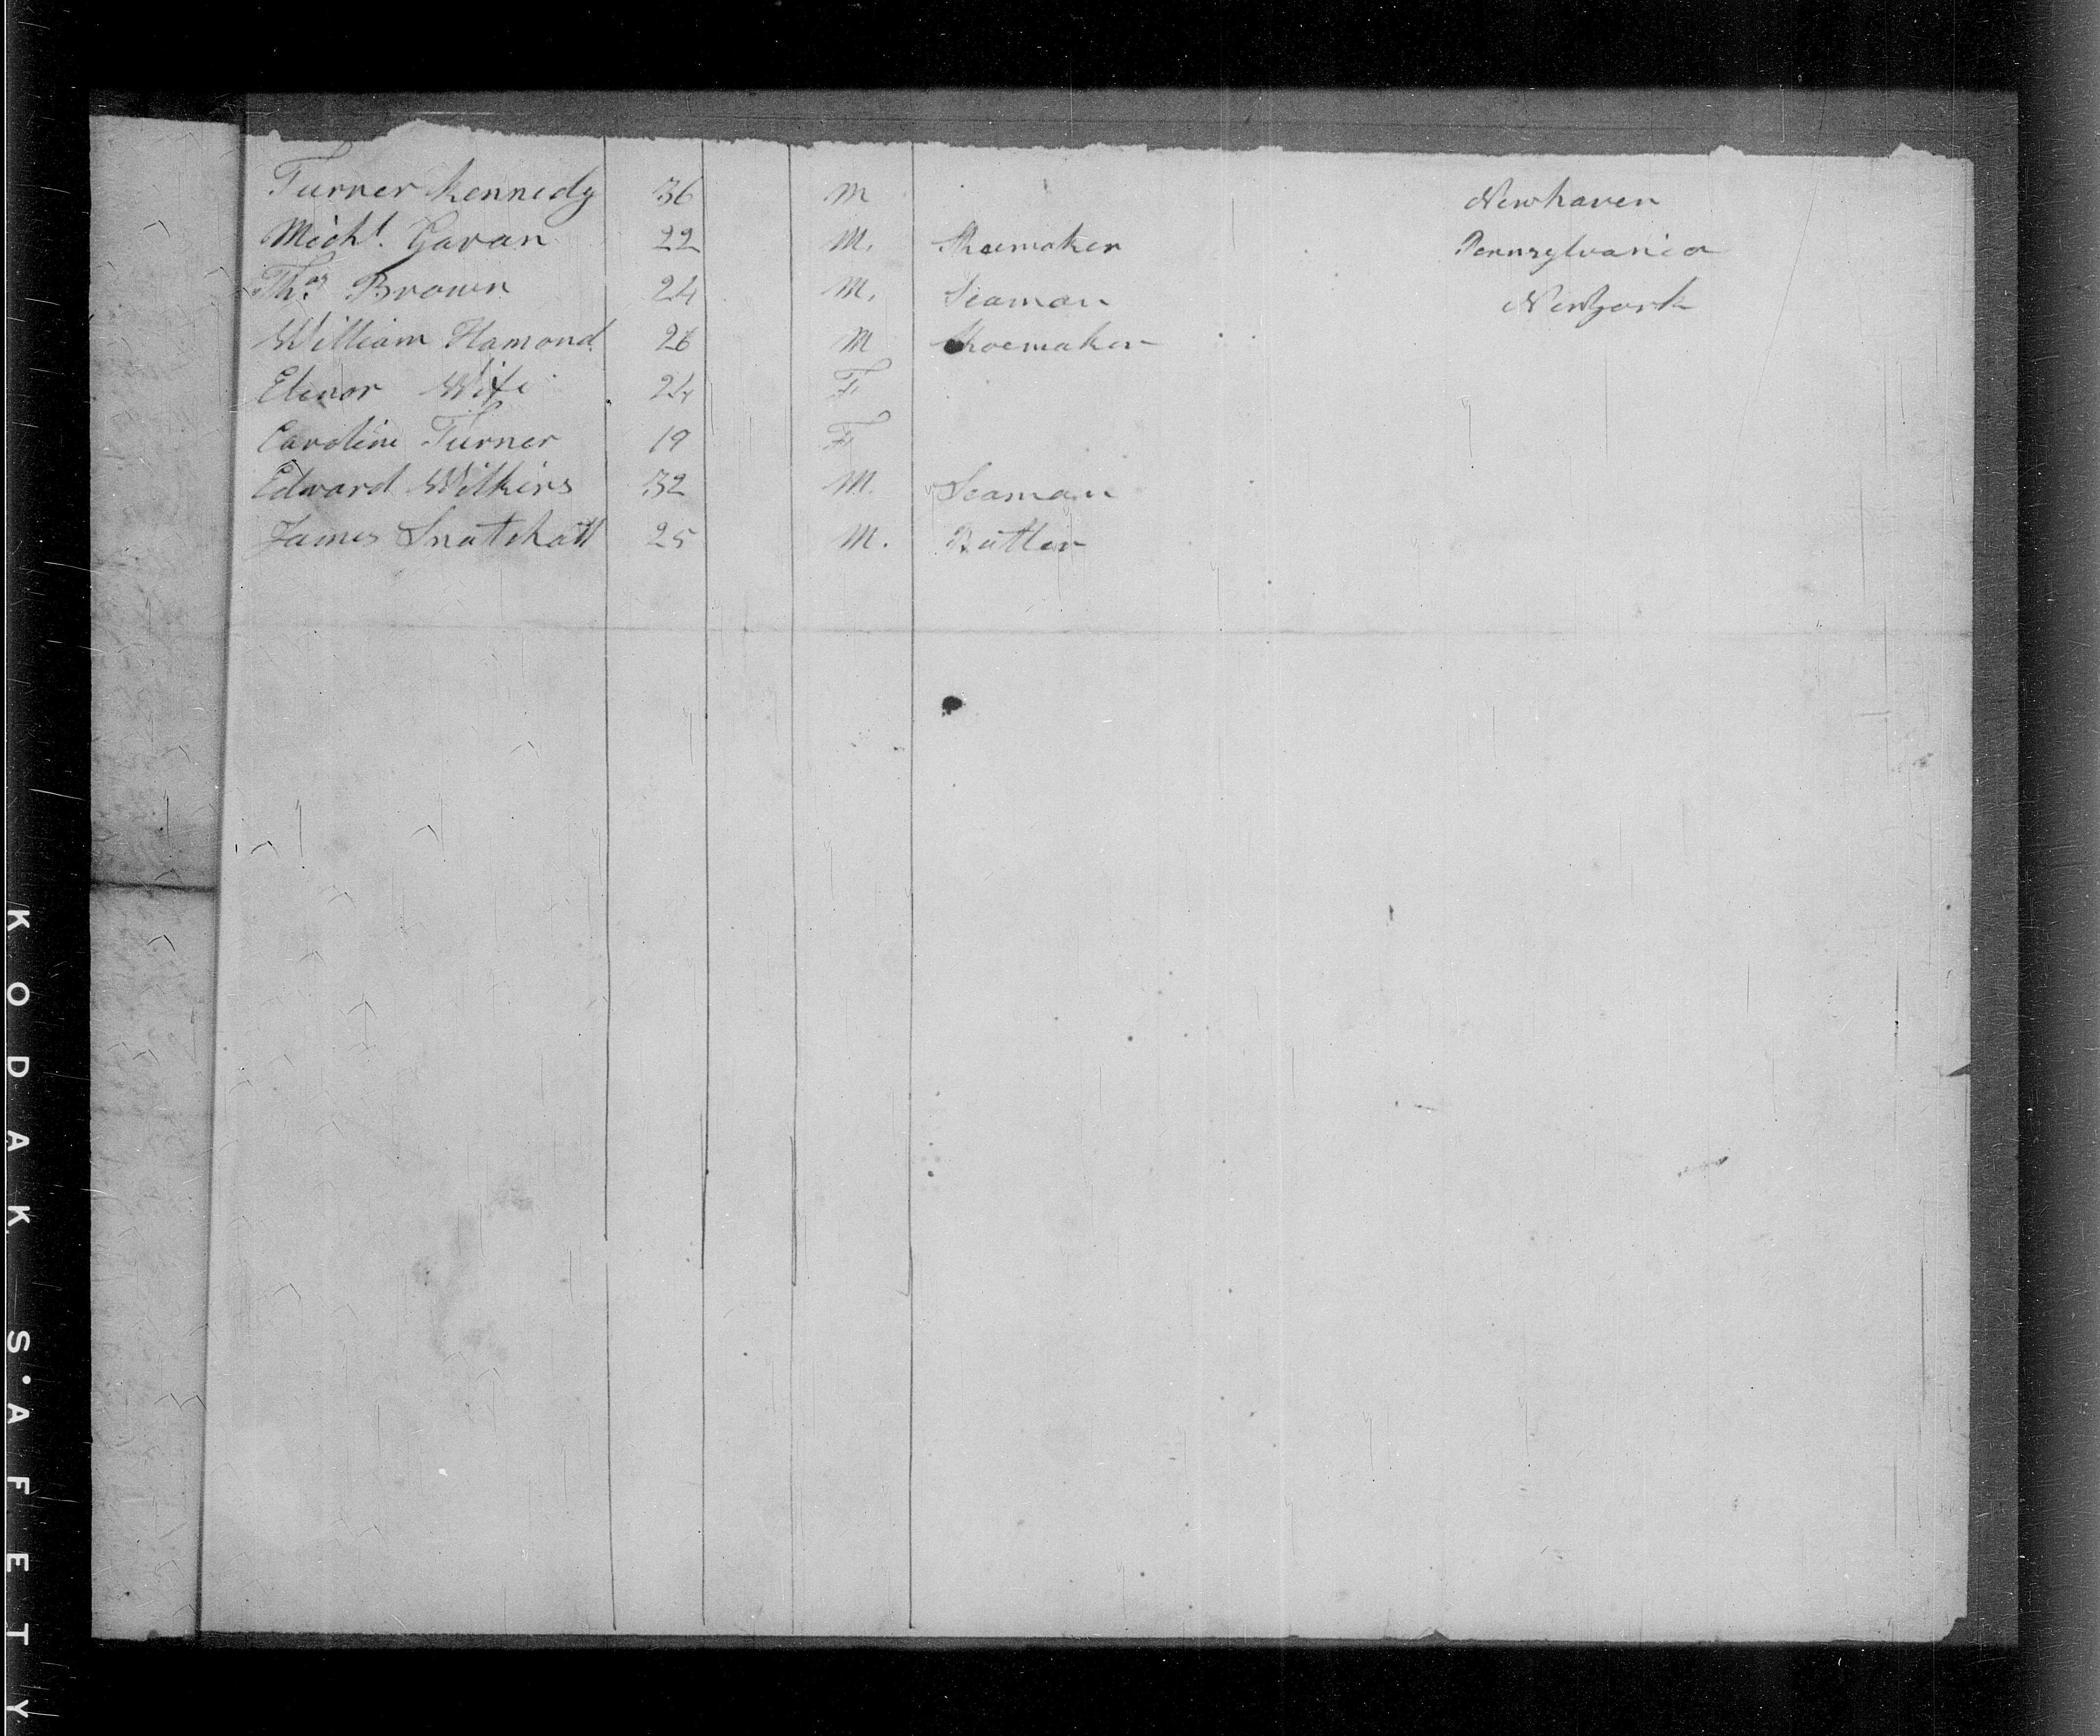 Turner Kennedy 36 M Newhaven
Michl. Gavan 22 M. Shoemaker Pennsylvania
Thos. Brown 24 M. Seaman Newyork
William Hamond 26 M Shoemaker
Elenor Wife 24 F
Caroline Turner 19 F
Edward Wilkins 32 M. Seaman
James 25 M. Butler
KODAK S·AFETY